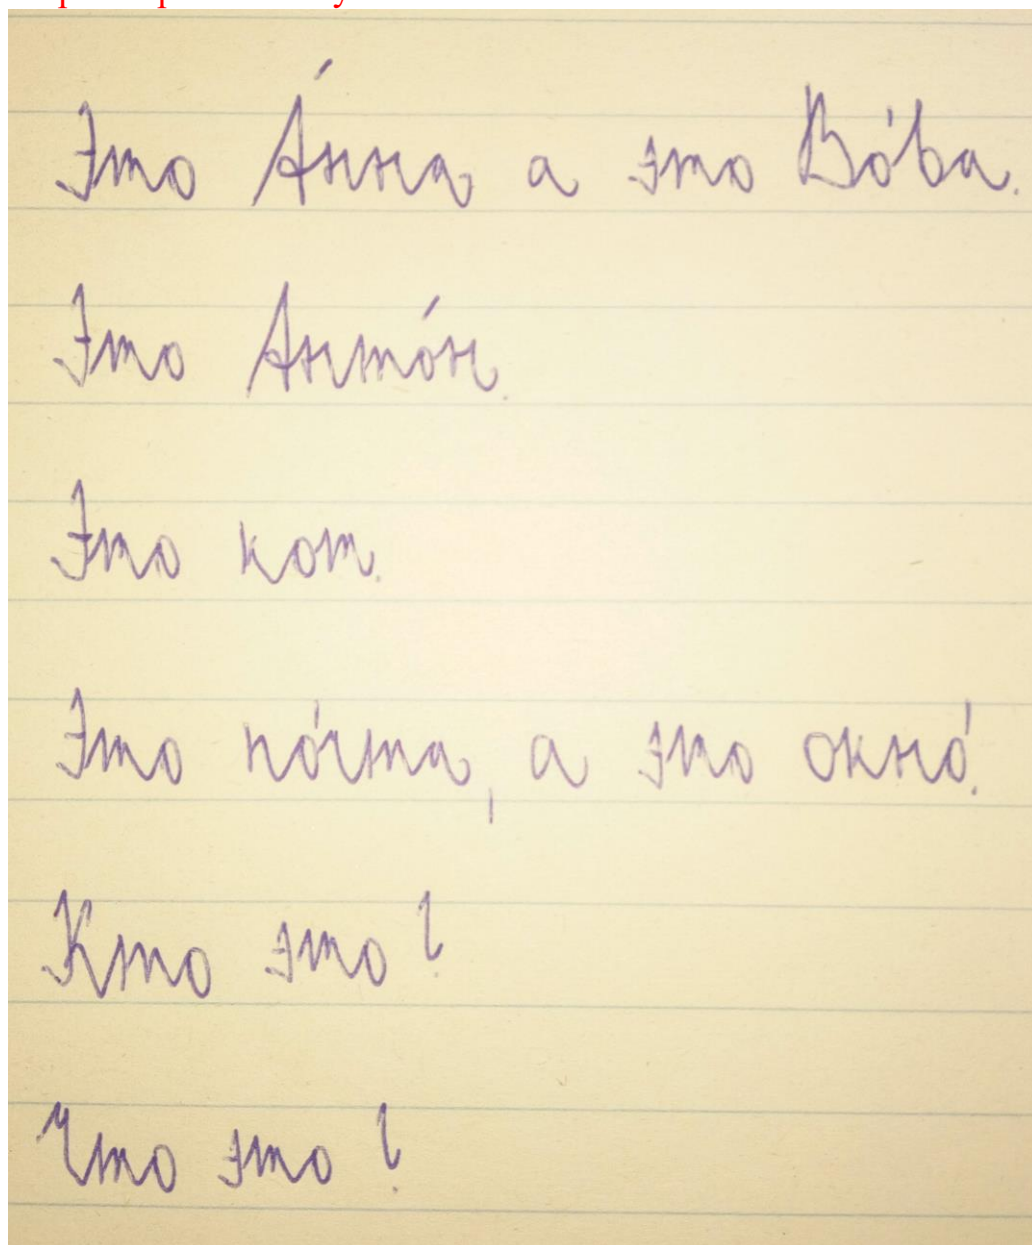 Это А́нна а это Во́ва.
Это Анто́н.
Это кот.
Это по́чта, а это окно́.
Кто это?
Что это?